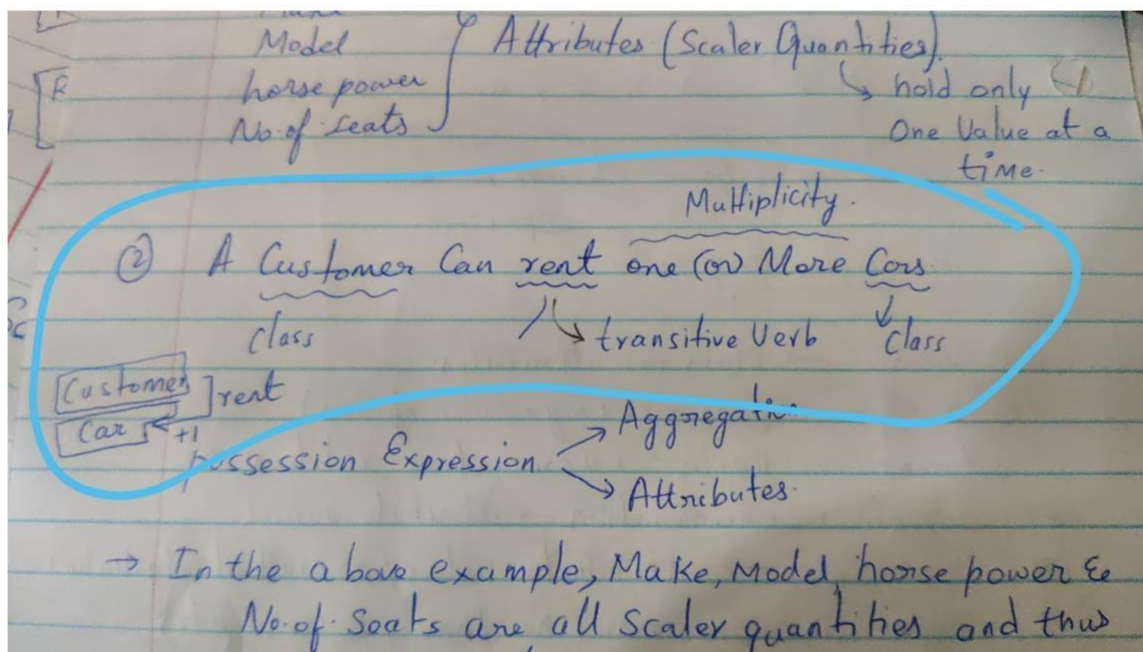 Model
horse power
No. of seats
Attributes (Scaler Quantities).
hold only
One Value at a
time.
Multiplicity.
② A Customer Can rent one (or) More Cars.
class
transitive Verb
class
Customer
rent
Car
+1
possession Expression
Aggregation
Attributes.
→ In the above example, Make, Model, horse power &
No. of. Seats are all Scaler quantities and thus